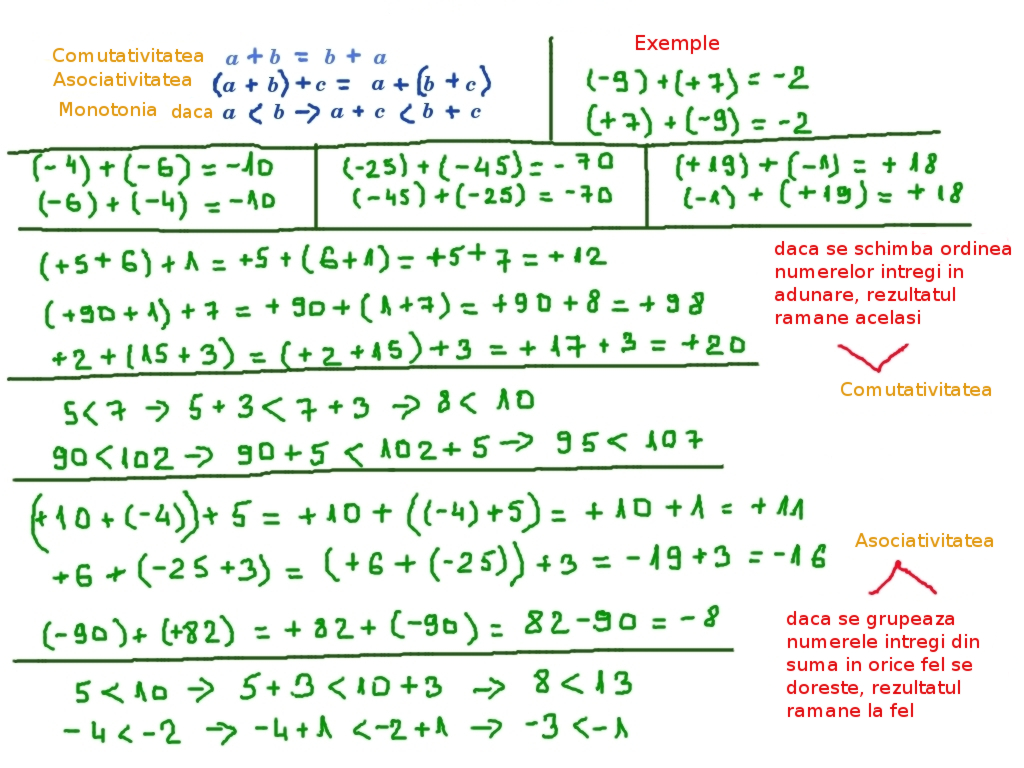 Comutativitatea a + b = b + a
Asociativitatea (a + b) + c = a + (b + c)
Monotonia daca a < b -> a + c < b + c
Exemple
(-9) + (+7) = -2
(+7) + (-9) = -2
(-4) + (-6) = -10
(-6) + (-4) = -10
(-25) + (-45) = -70
(-45) + (-25) = -70
(+19) + (-1) = +18
(-1) + (+19) = +18
(+5+6) + 1 = +5 + (6+1) = +5+7 = +12
(+90+1) + 7 = +90 + (1+7) = +90+8 = +98
+2 + (15+3) = (+2+15) + 3 = +17+3 = +20
daca se schimba ordinea
numerelor intregi in
adunare, rezultatul
ramane acelasi
Comutativitatea
5<7 -> 5+3<7+3 -> 8<10
90<102 -> 90+5<102+5 -> 95<107
(+10+(-4))+5 = +10+((-4)+5) = +10+1 = +11
+6+(-25+3) = (+6+(-25))+3 = -19+3 = -16
(-90)+(+82) = +82+(-90) = 82-90 = -8
Asociativitatea
daca se grupeaza
numerele intregi din
suma in orice fel se
doreste, rezultatul
ramane la fel
5<10 -> 5+3<10+3 -> 8<13
-4<-2 -> -4+1<-2+1 -> -3<-1